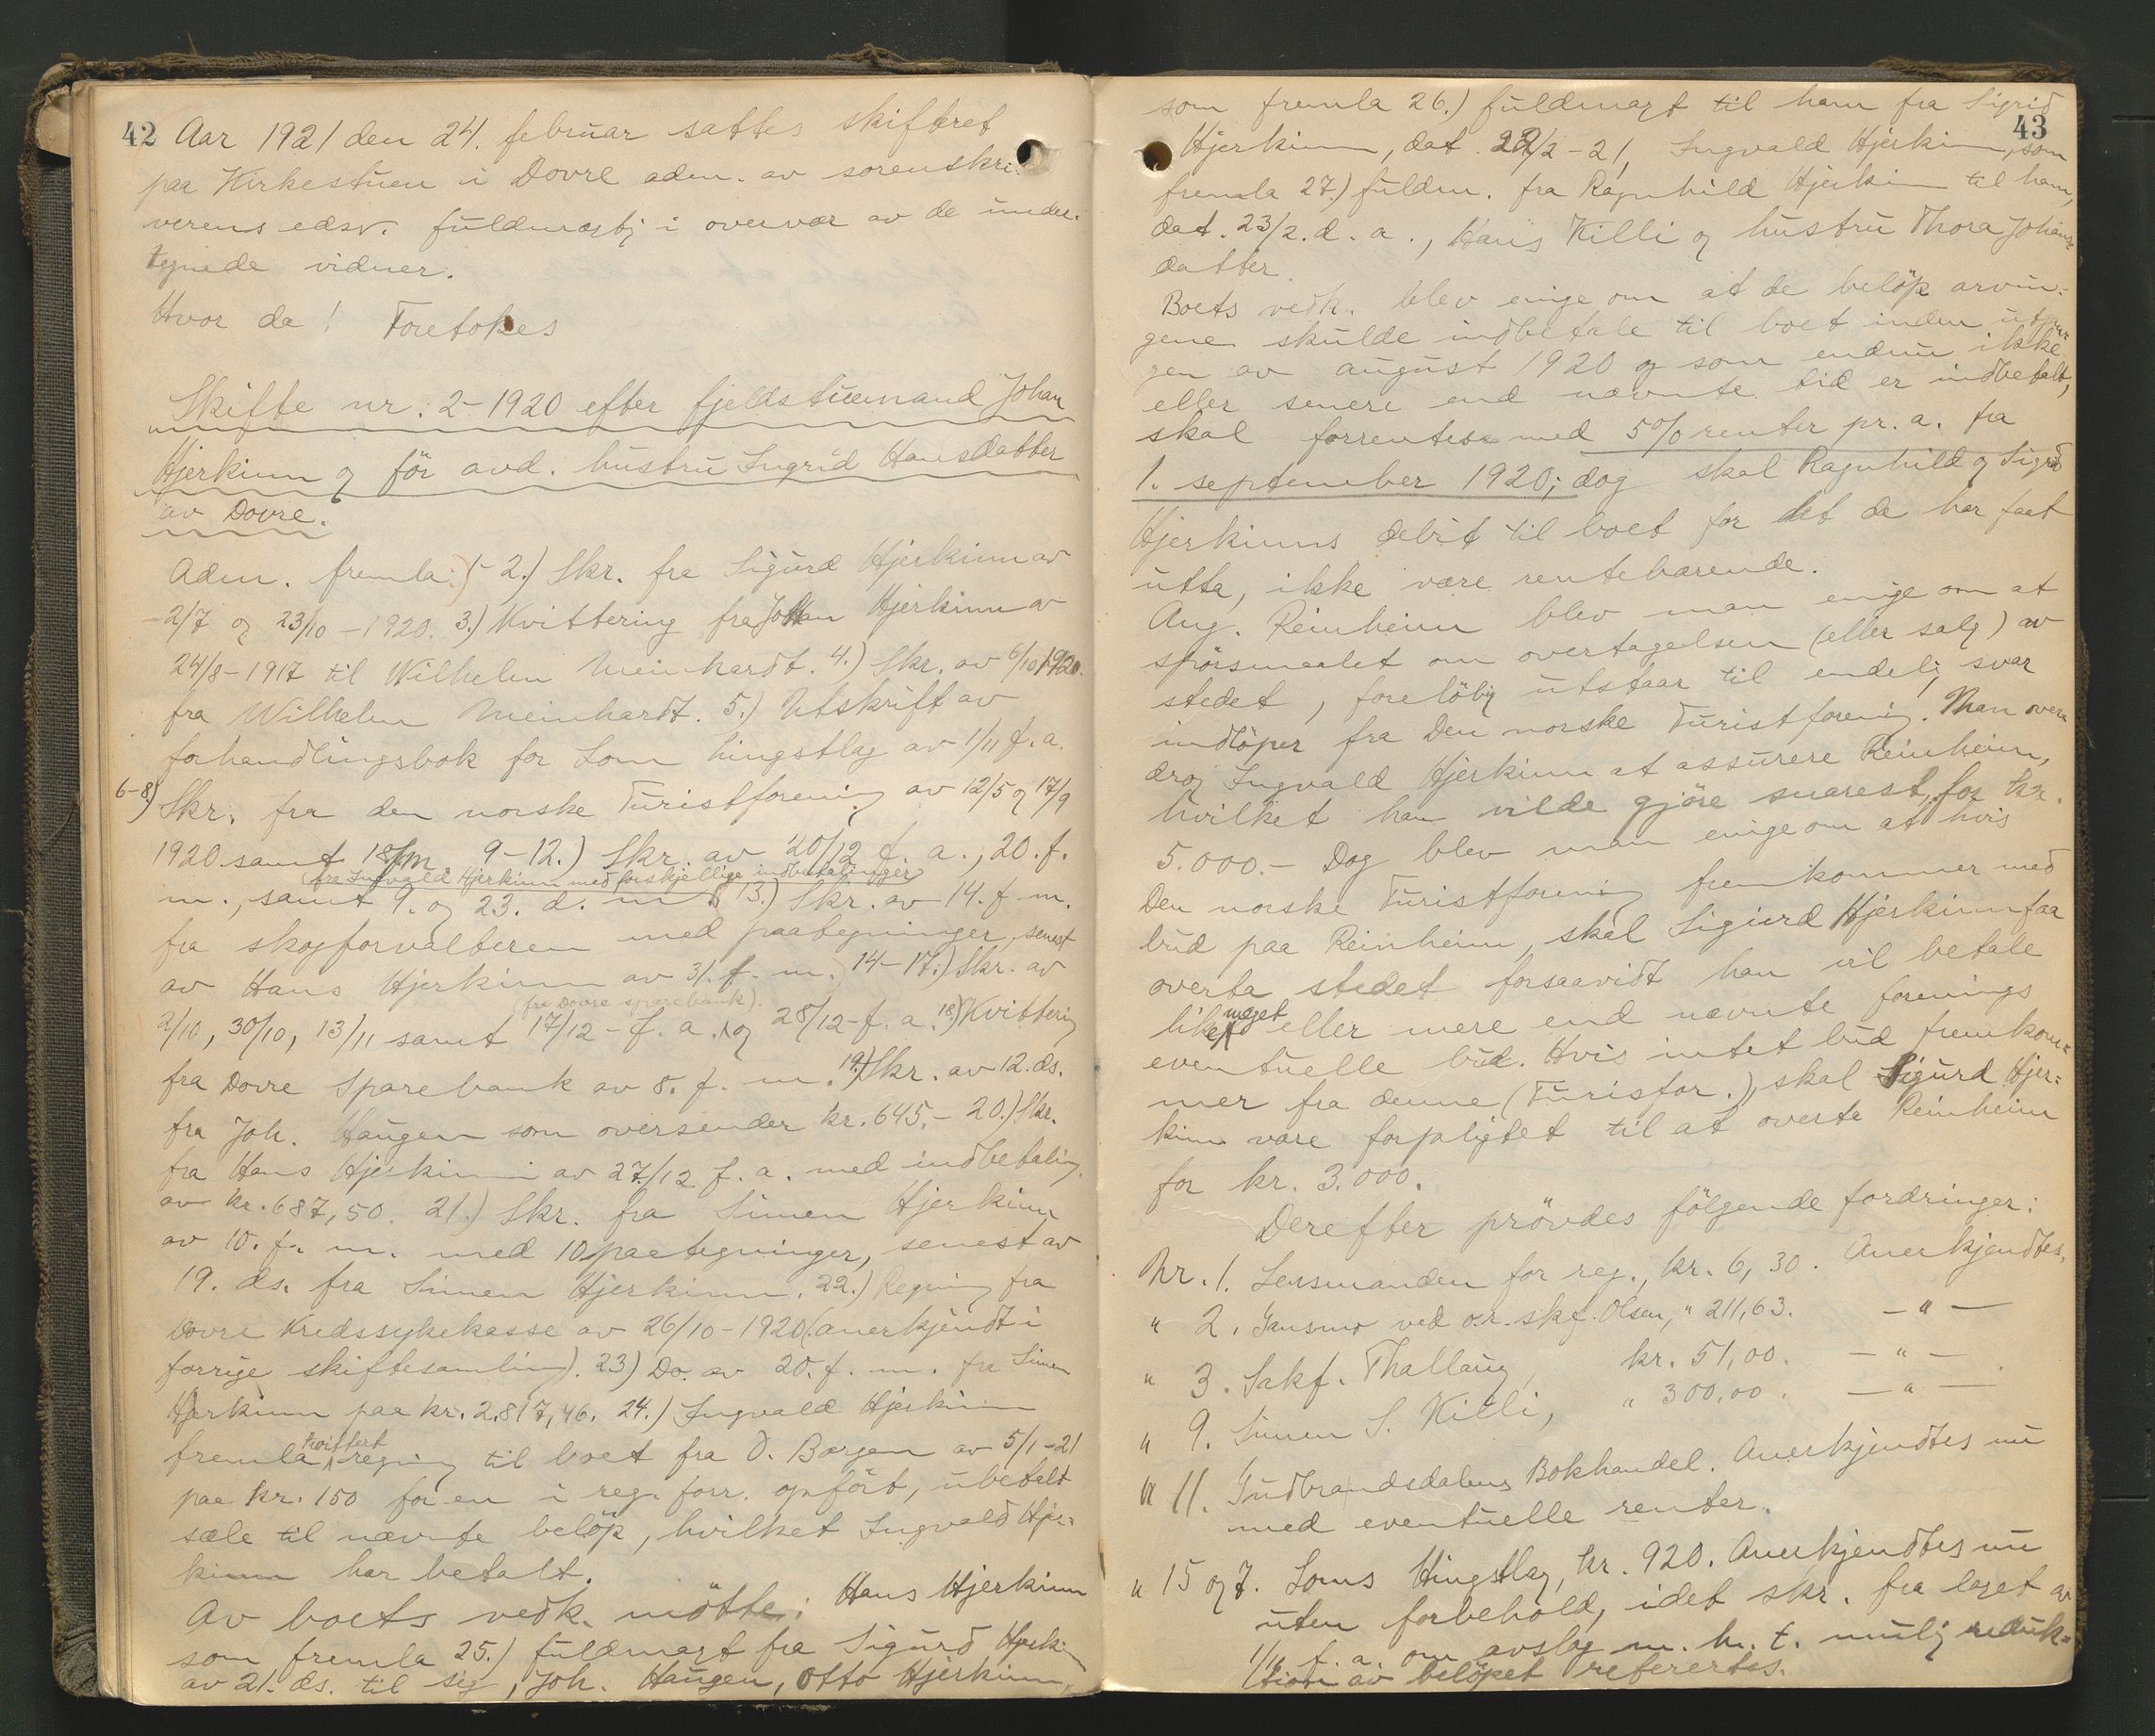 42 Aar 1921 den 24. februar sattes skifteret
paa Kirkestuen i Dovre adm. av sorenskri-
verens edsv. fuldmægtig i overvær av de under-
tegnede vidner.
Hvor da! Foretokes
Skifte nr. 2-1920 efter fjeldstuemand Johan
Hjerkinn og før avd. hustru Ingrid Hansdatter
av Dovre.
Adm. fremla: 2.) Skr. fra Sigurd Hjerkinn av
2/7 og 23/10-1920. 3.) Kvittering fra Johan Hjerkinn av
24/8-1917 til Wilhelm Meinhardt. 4.) Skr. av 6/10 1920
fra Wilhelm Meinhardt. 5.) Utskrift av
forhandlingsbok for Lom hingstlag av 1/11 f.a.
6-8) Skr. fra den norske Turistforening av 12/5 og 17/9
1920 samt 18/f.m. 9-12.) Skr. av 20/12 f. a., 20. f.
(fra Ingvald Hjerkinn med forskjellige indbetalinger)
m., samt 9. og 23. d. m. 13.) Skr. av 14. f. m.
fra skogforvalteren med paategninger, senest
av Hans Hjerkinn av 31. f. m. 14-17.) Skr. av
(fra Dovre sparebank).
2/10, 30/10, 13/11 samt 17/12-f. a. og 28/12-f. a. 18.) Kvittering
fra Dovre Sparebank av 8. f. m. 19.) Skr. av 12. ds.
fra Joh. Haugen som oversender kr. 645,- 20.) Skr.
fra Hans Hjerkinn av 27/12 f. a. med indbetaling
av kr. 687,50. 21.) Skr. fra Simen Hjerkinn
av 10. f. m. med 10 paategninger, senest av
19. ds. fra Simen Hjerkinn. 22.) Regning fra
Dovre Kredssykekasse av 26/10-1920 (anerkjendt i
forrige skiftesamling). 23) Do. av 20. f. m. fra Simen
Hjerkinn paa kr. 2.817,46. 24.) Ingvald Hjerkinn
fremla kvittert regning til boet fra O. Borgen av 5/1-21
paa kr. 150 for en i reg. forr. opført, ubetalt
sæle til nævnte beløp, hvilket Ingvald Hjer-
kinn har betalt.
Av boets vedk. møtte: Hans Hjerkinn
som fremla 25.) fuldmagt fra Sigurd Hjerkinn
av 21. ds. til sig, Joh. Haugen, Otto Hjerkinn,
43
som fremla 26.) fuldmagt til ham fra Sigrid
Hjerkinn, dat. 22/2-21, Ingvald Hjerkinn, som
fremla 27.) fuldm. fra Ragnhild Hjerkinn til ham,
dat. 23/2. d. a., Hans Killi og hustru Thora Johans-
datter.
Boets vedk. blev enige om at de beløp arvin-
gene skulde indbetale til boet inden utgan-
gen av august 1920 og som endnu ikke
eller senere end nævnte tid er indbetalt,
skal forrentes med 5% renter pr. a. fra
1. september 1920; dog skal Ragnhild og Sigrid
Hjerkinns debit til boet for det de har faat
utta, ikke være rentebærende.
Ang. Reinheim blev man enige om at
spørsmaalet om overtagelsen (eller salg) av
stedet, foreløbig utstaar til endelig svar
indløper fra Den norske Turistforening. Man over-
drog Ingvald Hjerkinn at assurere Reinheim,
hvilket han vilde gjøre snarest, for kr.
5.000.- Dog blev man enige om at hvis
Den norske Turistforening fremkommer med
bud paa Reinheim, skal Sigurd Hjerkinn faa
overta stedet forsaavidt han vil betale
like meget eller mere end nævnte forenings
eventuelle bud. Hvis intet bud fremkom-
mer fra denne (Turisfor.), skal Sigurd Hjer-
kinn være forpligtet til at overta Reinheim
for kr. 3.000.
Derefter prøvdes følgende fordringer:
Nr. 1. Lensmanden for reg., kr. 6,30. Anerkjendtes.
" 2. Jansmo ved o.r. skf. Olsen, " 211,63. - " -
" 3. Sakf. Thallaug, kr. 51,00. - " -
" 9. Simen S. Killi, " 300,00. - " -
" 11. Gudbrandsdalens Bokhandel. Anerkjendtes nu
med eventuelle renter.
" 15 og 7. Loms Hingstlag, kr. 920. Anerkjendtes nu
uten forbehold, idet skr. fra laget av
1/11 f. a. om avslag m. h. t. mulig reduk-
tion av beløpet refererte.